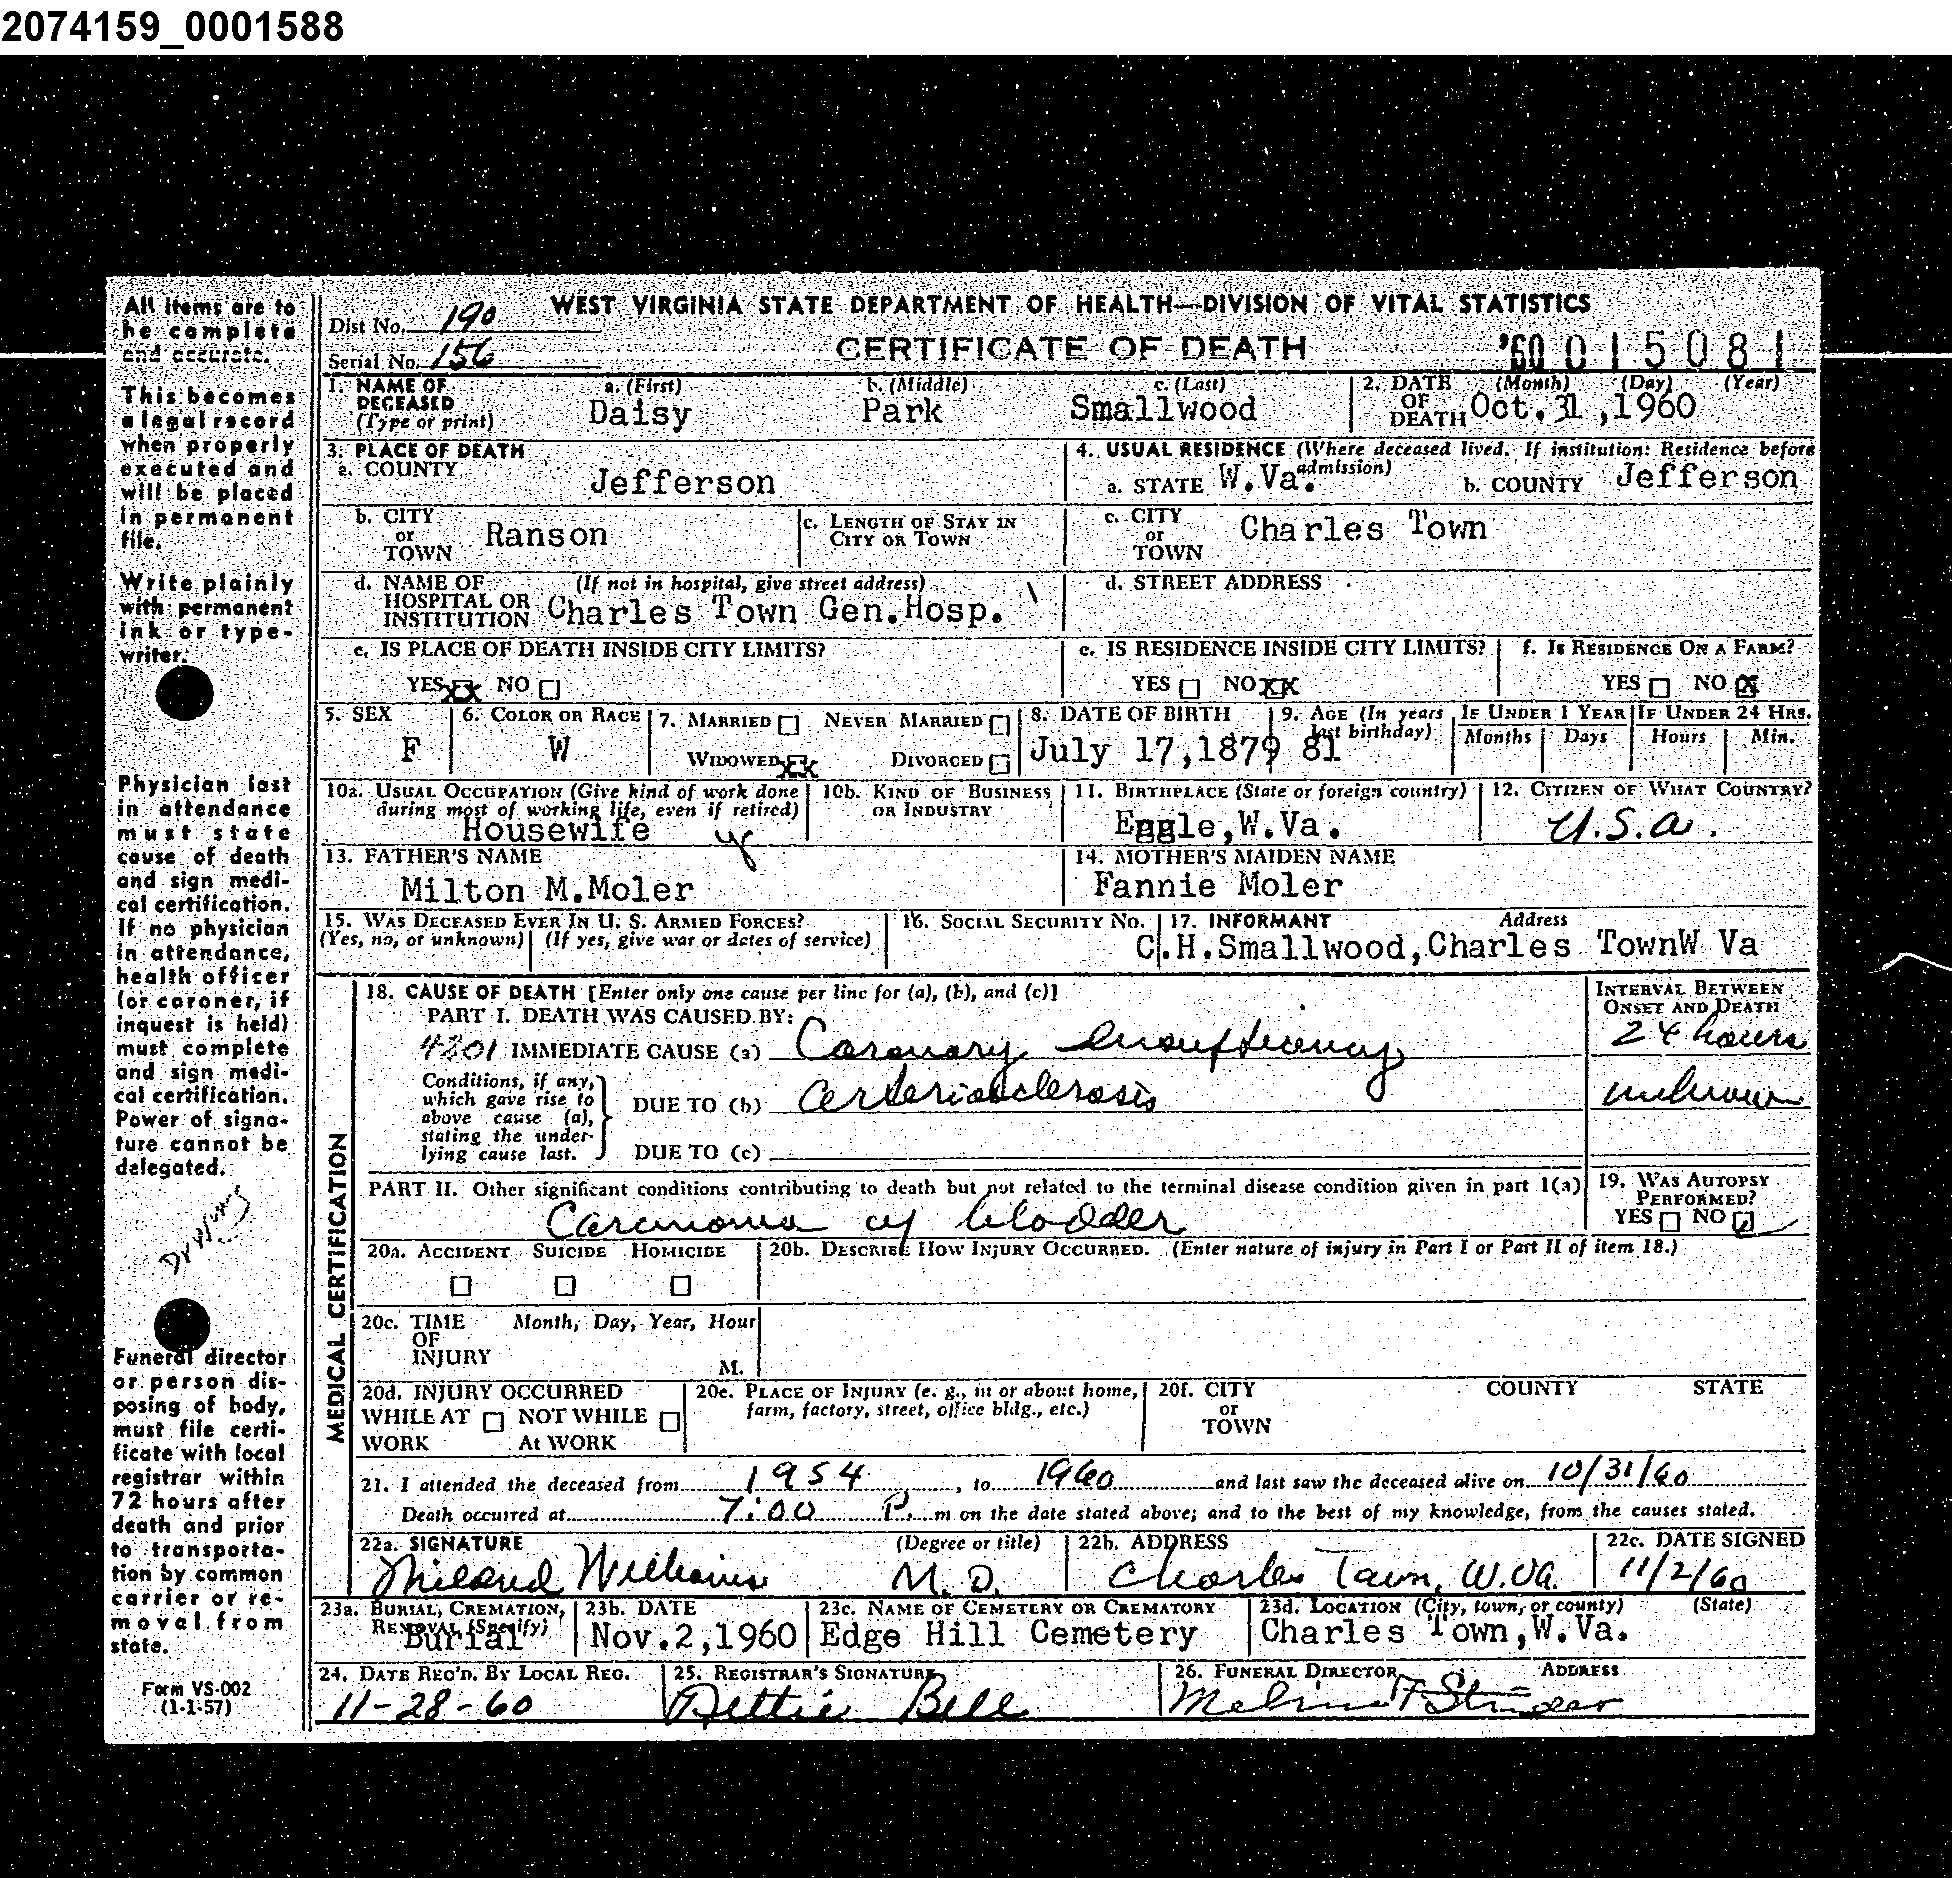 2074159_0001588
All items are to
be complete
and accurate.
This becomes
a legal record
when properly
executed and
will be placed
in permanent
file.
Write plainly
with permanent
ink or type-
writer.
Physician last
in attendance
must state
cause of death
and sign medi-
cal certification.
If no physician
in attendance,
health officer
(or coroner, if
inquest is held)
must complete
and sign medi-
cal certification.
Power of signa-
ture cannot be
delegated.
Funeral director
or person dis-
posing of body,
must file certi-
ficate with local
registrar within
72 hours after
death and prior
to transporta-
tion by common
carrier or re-
moval from
state.
Form VS-002
(1-1-57)
WEST VIRGINIA STATE DEPARTMENT OF HEALTH—DIVISION OF VITAL STATISTICS
Dist No. 190
Serial No. 156
CERTIFICATE OF DEATH
'60 015081
1. NAME OF DECEASED (Type or print) a. (First) Daisy b. (Middle) Park c. (Last) Smallwood
2. DATE OF DEATH (Month) (Day) (Year) Oct.31,1960
3. PLACE OF DEATH
a. COUNTY Jefferson
4. USUAL RESIDENCE (Where deceased lived. If institution: Residence before admission)
a. STATE W.Va. b. COUNTY Jefferson
b. CITY or TOWN Ranson
c. LENGTH OF STAY IN CITY OR TOWN
c. CITY or TOWN Charles Town
d. NAME OF HOSPITAL OR INSTITUTION (If not in hospital, give street address) Charles Town Gen.Hosp.
d. STREET ADDRESS
e. IS PLACE OF DEATH INSIDE CITY LIMITS?
YES XX NO
e. IS RESIDENCE INSIDE CITY LIMITS?
YES NO XX
f. IS RESIDENCE ON A FARM?
YES NO X
5. SEX F
6. COLOR OR RACE W
7. MARRIED NEVER MARRIED
WIDOWED XX DIVORCED
8. DATE OF BIRTH July 17,1879
9. AGE (In years last birthday) 81
IF UNDER 1 YEAR Months Days
IF UNDER 24 HRS. Hours Min.
10a. USUAL OCCUPATION (Give kind of work done during most of working life, even if retired) Housewife
10b. KIND OF BUSINESS OR INDUSTRY
11. BIRTHPLACE (State or foreign country) Eggle,W.Va.
12. CITIZEN OF WHAT COUNTRY? U.S.A.
13. FATHER'S NAME Milton M.Moler
14. MOTHER'S MAIDEN NAME Fannie Moler
15. WAS DECEASED EVER IN U. S. ARMED FORCES?
(Yes, no, or unknown) (If yes, give war or dates of service)
16. SOCIAL SECURITY NO.
17. INFORMANT Address
C.H.Smallwood,Charles TownW Va
MEDICAL CERTIFICATION
18. CAUSE OF DEATH [Enter only one cause per line for (a), (b), and (c)]
INTERVAL BETWEEN ONSET AND DEATH
PART I. DEATH WAS CAUSED BY:
4201 IMMEDIATE CAUSE (a) Coronary Insufficiency 24 hours
Conditions, if any, which gave rise to above cause (a), stating the underlying cause last.
DUE TO (b) Arteriosclerosis unknown
DUE TO (c)
PART II. Other significant conditions contributing to death but not related to the terminal disease condition given in part I(a)
Carcinoma of bladder
19. WAS AUTOPSY PERFORMED?
YES NO
20a. ACCIDENT SUICIDE HOMICIDE
20b. DESCRIBE HOW INJURY OCCURRED. (Enter nature of injury in Part I or Part II of item 18.)
20c. TIME OF INJURY Month, Day, Year, Hour M.
20d. INJURY OCCURRED
WHILE AT WORK NOT WHILE At WORK
20e. PLACE OF INJURY (e. g., in or about home, farm, factory, street, office bldg., etc.)
20f. CITY or TOWN COUNTY STATE
21. I attended the deceased from 1954, to 1960 and last saw the deceased alive on 10/31/60
Death occurred at 7:00 P. m on the date stated above; and to the best of my knowledge, from the causes stated.
22a. SIGNATURE (Degree or title) Williams M.D.
22b. ADDRESS Charles Town, W.Va.
22c. DATE SIGNED 11/2/60
23a. BURIAL, CREMATION, REMOVAL (Specify) Burial
23b. DATE Nov.2,1960
23c. NAME OF CEMETERY OR CREMATORY Edge Hill Cemetery
23d. LOCATION (City, town, or county) (State) Charles Town,W.Va.
24. DATE REC'D. BY LOCAL REG. 11-28-60
25. REGISTRAR'S SIGNATURE Bell
26. FUNERAL DIRECTOR ADDRESS